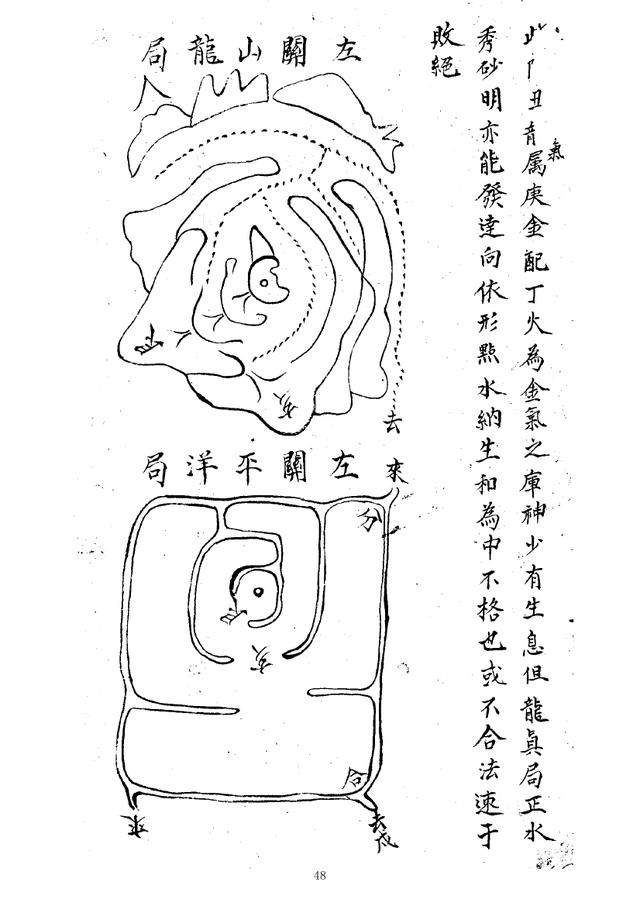 丑音氣属庚金配丁火為金氣之庫神少有生息但龍眞局正水
秀砂明亦能發達向依形點水納生和為中不格也或不合法速于
敗絕
左關山龍局
亥
去
左關平洋局
來
分
亥
合
來
去戌
48